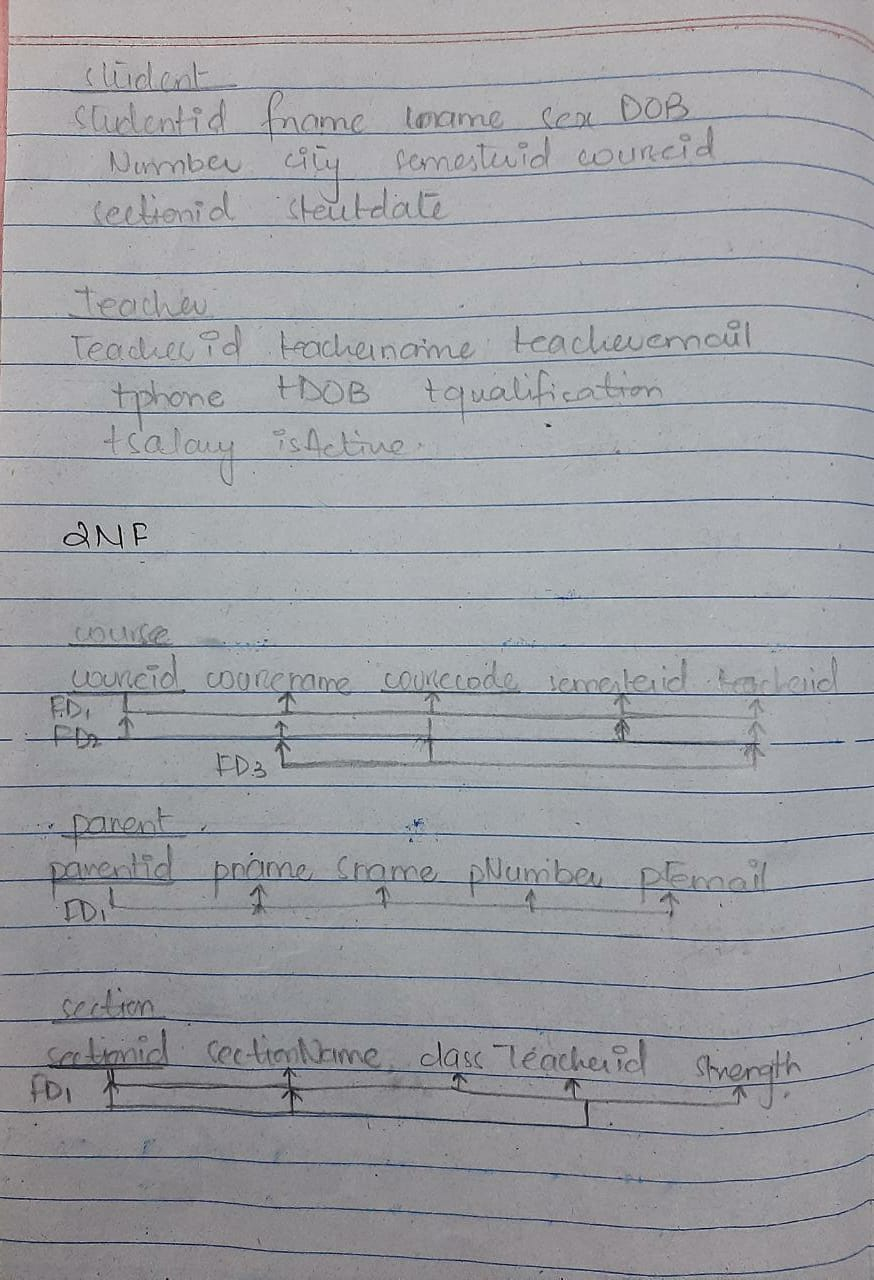 student
studentid fname lname sex DOB
Number city semesterid courseid
sectionid startdate
Teacher
Teacherid teachername teacheremail
tphone tDOB tqualification
tsalary isActive.
2NF
course
courseid coursename coursecode semesterid teacherid
FD1
FD2
FD3
parent
parentid pname Sname pNumber pEmail
FD1
section
sectionid sectionName class Teacherid Strength
FD1